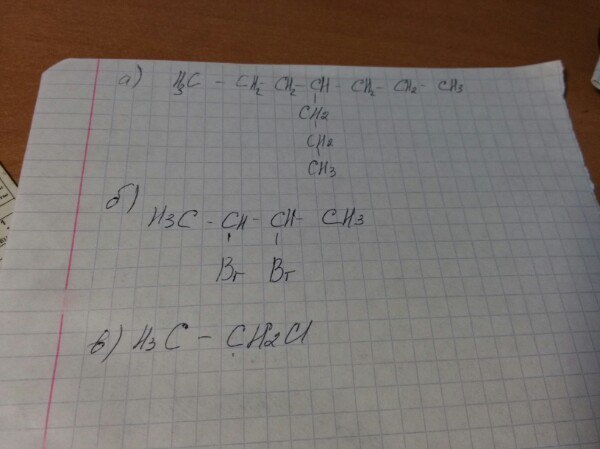 а) H₃C - CH₂ CH₂ - CH - CH₂ - CH₂ - CH₃
CH2
CH2
CH3
б) H3C - CH - CH - CH3
Br Br
в) H3C - CH2Cl